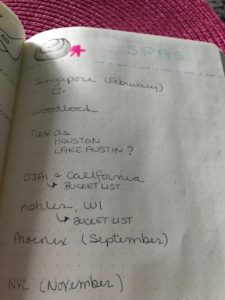 SPAS
Singapore (February)
Woodloch
Texas
HOUSTON
LAKE AUSTIN?
OJAI & California
BUCKET LIST
Kohler, WI
BUCKET LIST
Phoenix (September)
NYC (November)